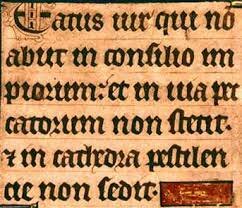 Eatus uir qui no
abiit in consilio im
piorum: et in uia pec
catorum non stetit:
⁊ in cathedra pestilen
cie non sedit: